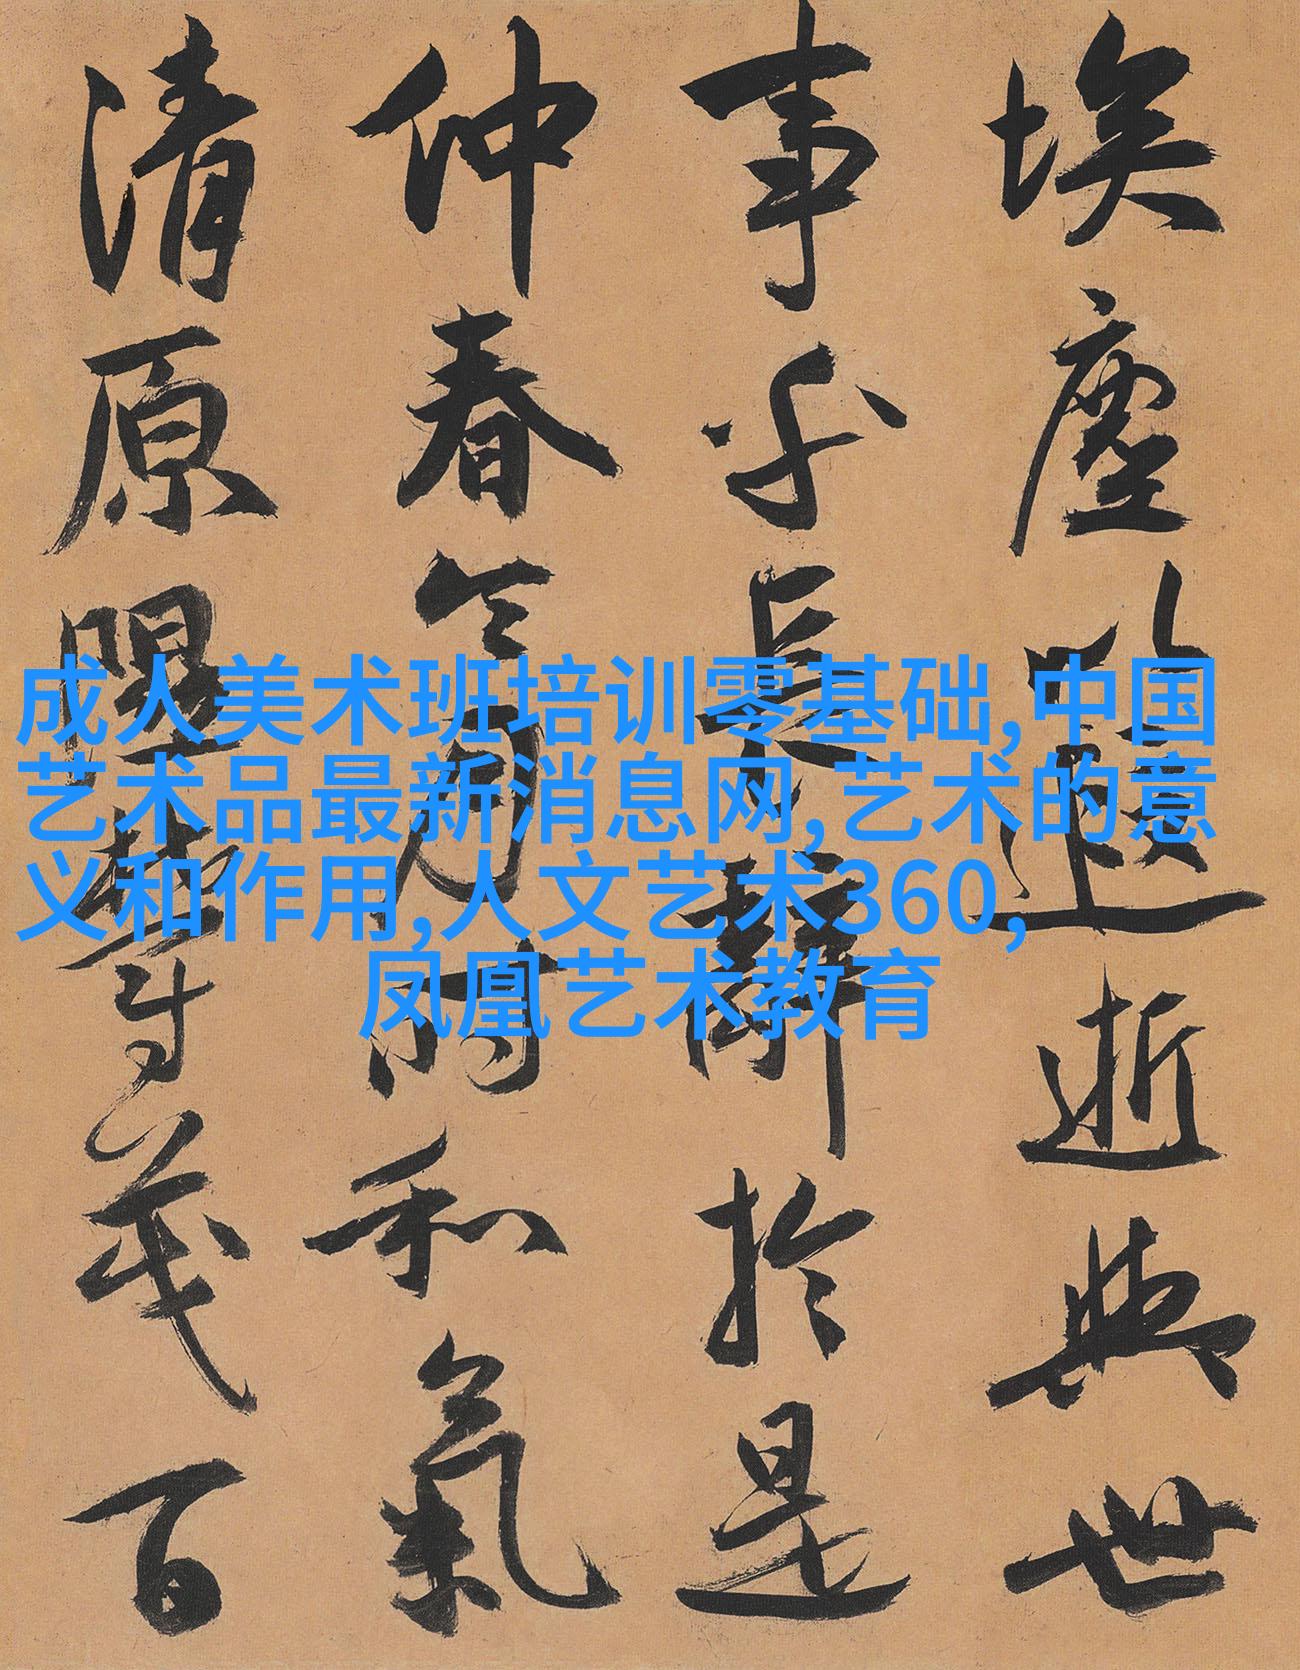 埃塵以遐逝與世
事乎長辭於是
仲春令月時和氣
清原隰鬱茂百
成人美术班培训零基础,中国
艺术品最新消息网,艺术的意
义和作用,人文艺术360,
凤凰艺术教育